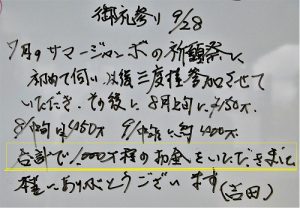 御礼参り 9/28
7月のサマージャンボの祈願祭に
初めて伺い以後三度程参加させて
いただき、その後に8月上旬に150万
8/中旬に450万 9/中旬に約400万
合計で1,000万程のお金をいただきました
本当にありがとうございます(吉田)